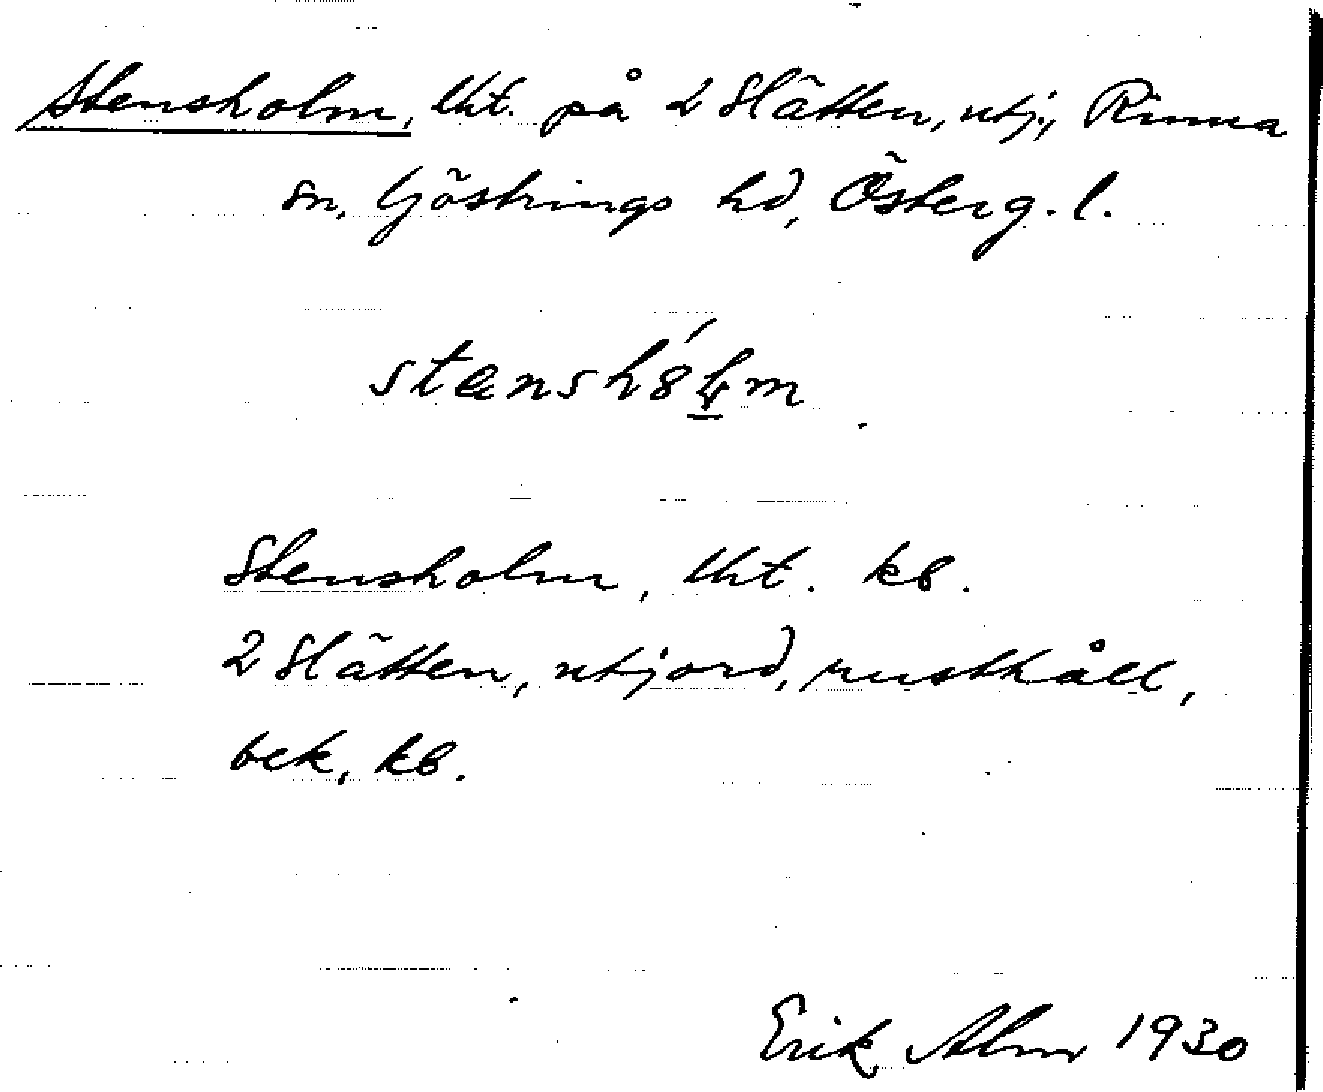 Stensholm, lht. på 2 Slätten, utj., Rinna
sn, Göstrings hd, Österg. l.
stænshó̵ļm
Stensholm, lht. kb.
2 Slätten, utjord, rusthåll,
bek, kb.
Erik Alm 1930